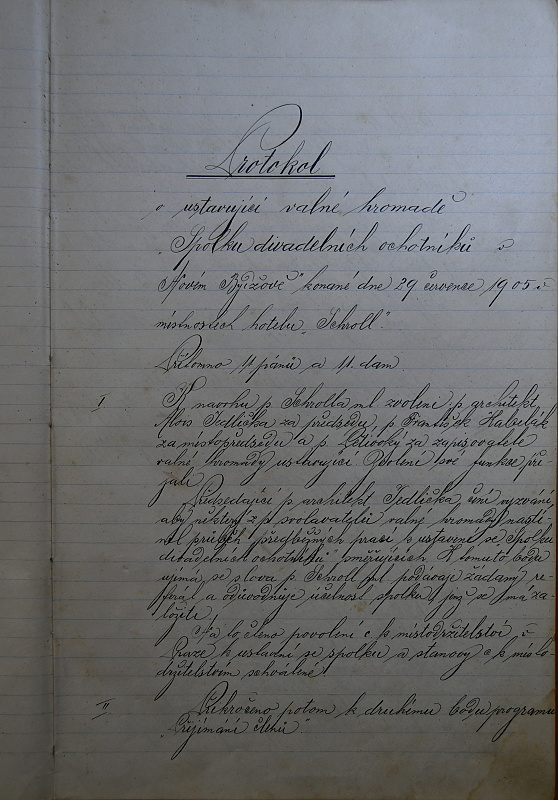 Protokol
o ustavující valné hromadě
„Spolku divadelních ochotníků v
Novém Bydžově" konané dne 29 července 1905 v
místnosach hotelu „Schroll".
Přítomno 19 pánů a 11. dam.
I K navrhu p. Schrolla ml. zvoleni p. architekt
Alois Jedlička za předsedu, p. František Habelák
za místopředsedu a p. za zapisovatele
valné hromady ustavující. Zvolení své funkce při-
jali.
Předsedající p. architekt Jedlička činí vyzvání,
aby některý z p. svolavatelů valné hromady nastí-
nil průběh předběžných prací k ustavení se „Spolku
divadelních ochotníků" směřujících. K tomuto bodu
ujímá se slova p. Schroll ml. podávaje žádaný re-
ferat a odůvodňuje účelnost spolku, jenž se má za-
ložiti.
Na to čteno povolení c. k. místodržitelství v
Praze k ustavení se spolku a stanovy c. k. místo-
držitelstvím schválené.
II Přikročeno potom k druhému bodu programu
„Přijímání členů".